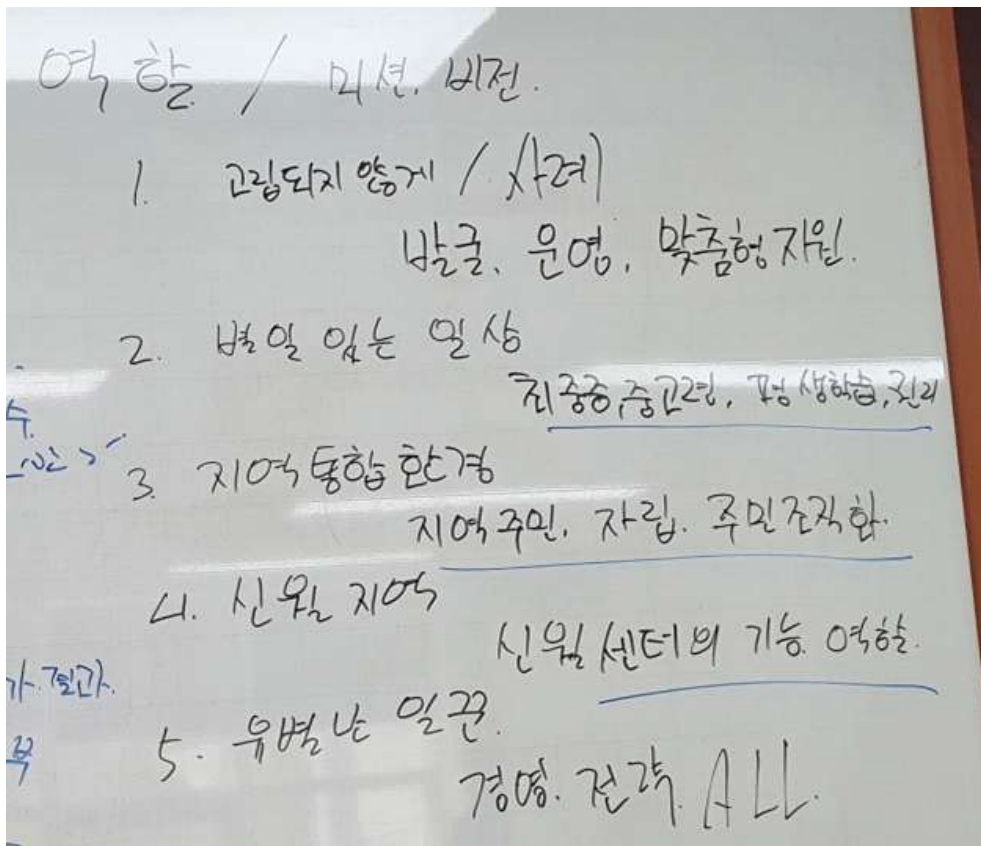 역할 / 미션. 비전.
1. 고립되지 않게 / 사례
발굴. 운영. 맞춤형지원.
2. 별일 있는 일상
최중증, 중고령, 평생학습, 권리
3. 지역통합환경
지역주민. 자립. 주민조직화.
4. 신월 지역
신월센터의 기능 역할.
5. 유별난 일꾼.
경영. 전략. ALL.
수.
가. 결과.
부